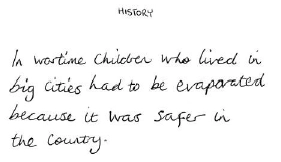 HISTORY
In wartime children who lived in
big cities had to be evaporated
because it was safer in
the county.